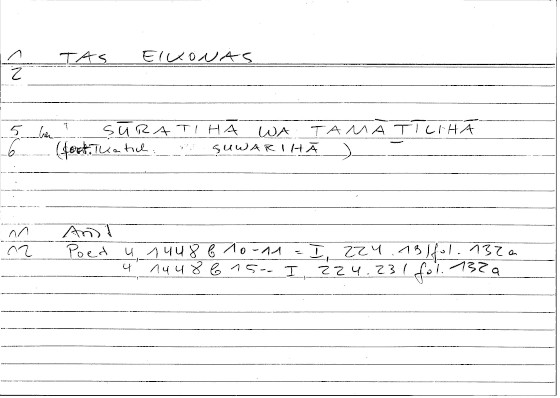 1 TAS EIKONAS
2
5 ṢŪRATIHĀ WA TAMĀṮILIHĀ
6 ( ṢUWARIHĀ )
11 Arist
12 Poet 4, 1448 b 10-11 = I, 224.19/fol. 132a
4, 1448 b 15-- I, 224.23/fol. 132a